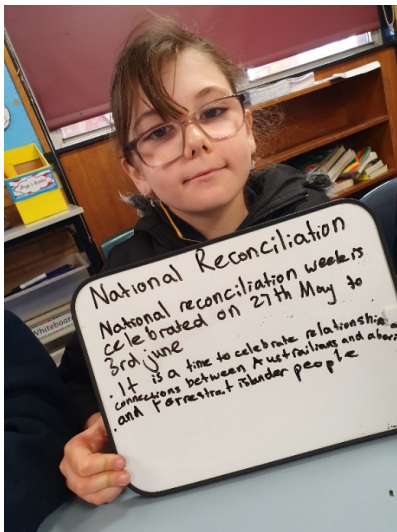 National Reconciliation
National reconciliation week is
celebrated on 27th May to
3rd june
. It is a time to celebrate relationship
connections between Austrailians and
. and Torrestrait islander people
Whiteboard